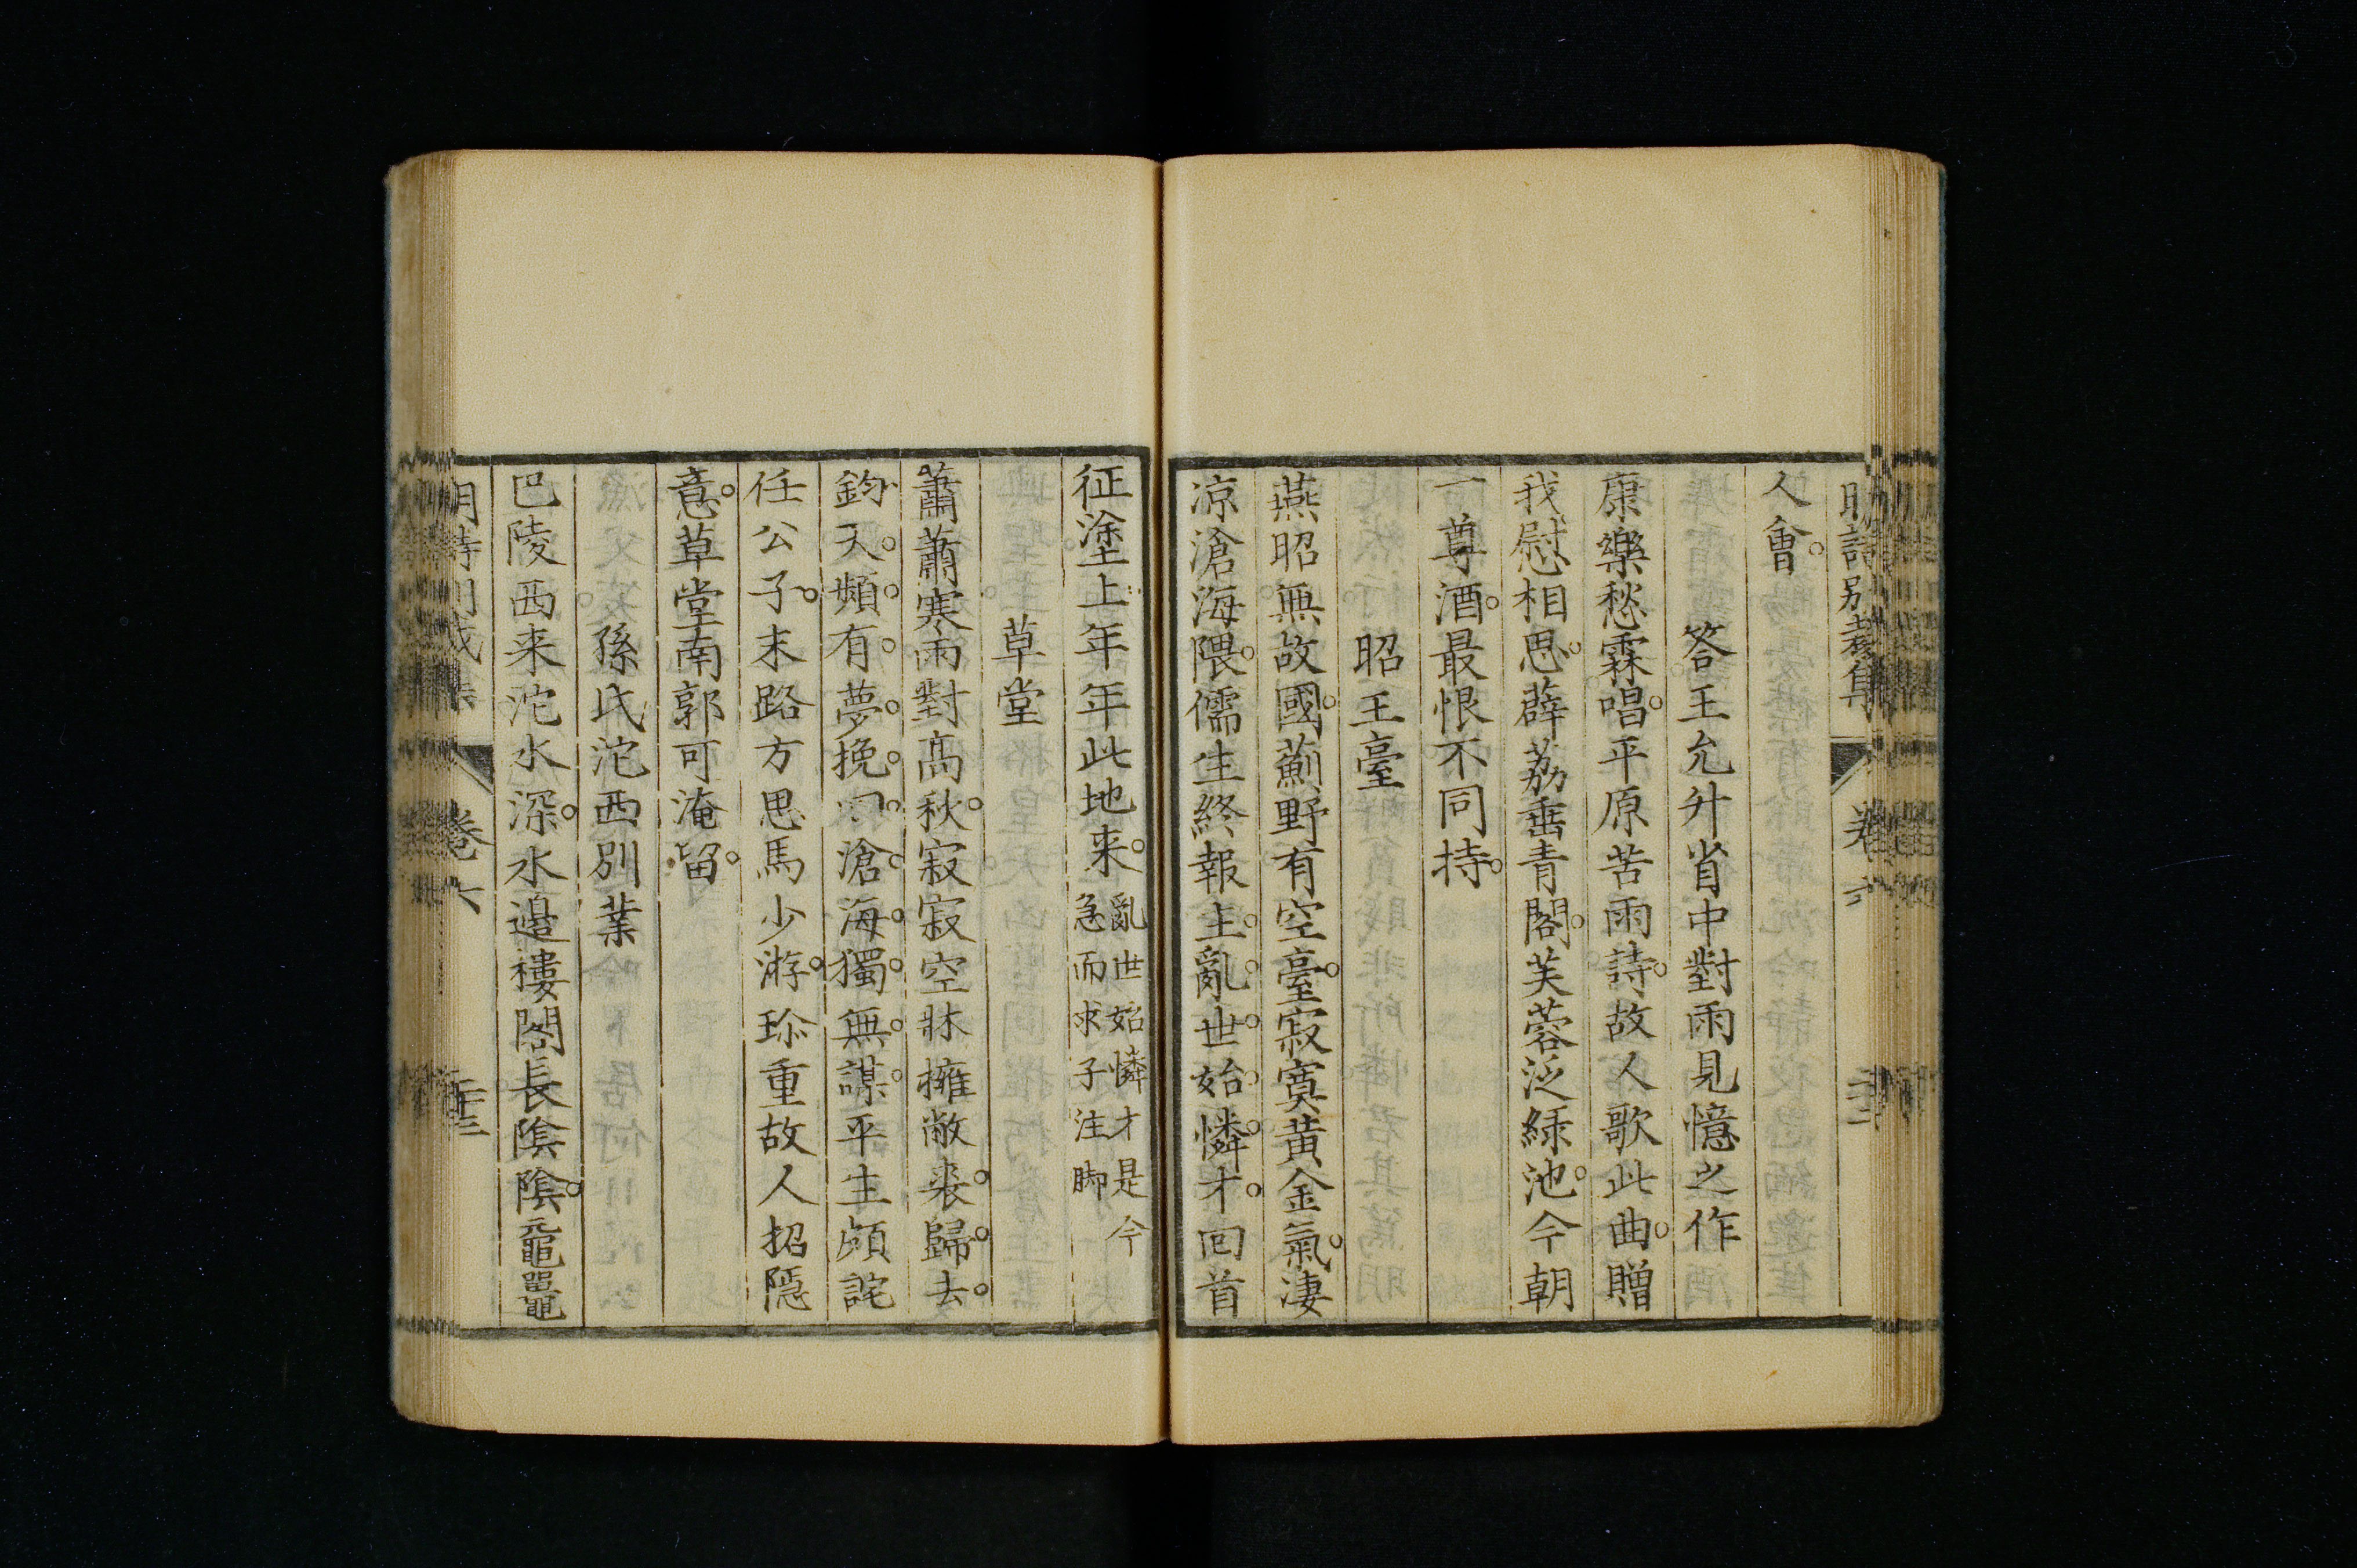 明詩別裁集 卷六
人會。
答王允升省中對雨見憶之作
康樂愁霖唱。平原苦雨詩。故人歌此曲。贈
我慰相思。薜荔垂青閣。芙蓉泛綠池。今朝
一尊酒。最恨不同持。
昭王臺
燕昭無故國。薊野有空臺。寂寞黃金氣。淒
凉滄海隈。儒生終報主。亂世始憐才。回首
征塗上年年此地來。亂世始憐才是今
急而求子注脚
草堂
蕭蕭寒雨對高秋。寂寂空牀擁敝裘。歸去。
鈞天。頻。有。夢。挽。滄。海。獨。無。謀。平生頗詫
任公子。末路方思馬少游。珍重故人招隱
意。草堂南郭可淹留。
孫氏沱西別業
巴陵西来沱水深。水邉樓閣長陰陰。黿鼉
卷六